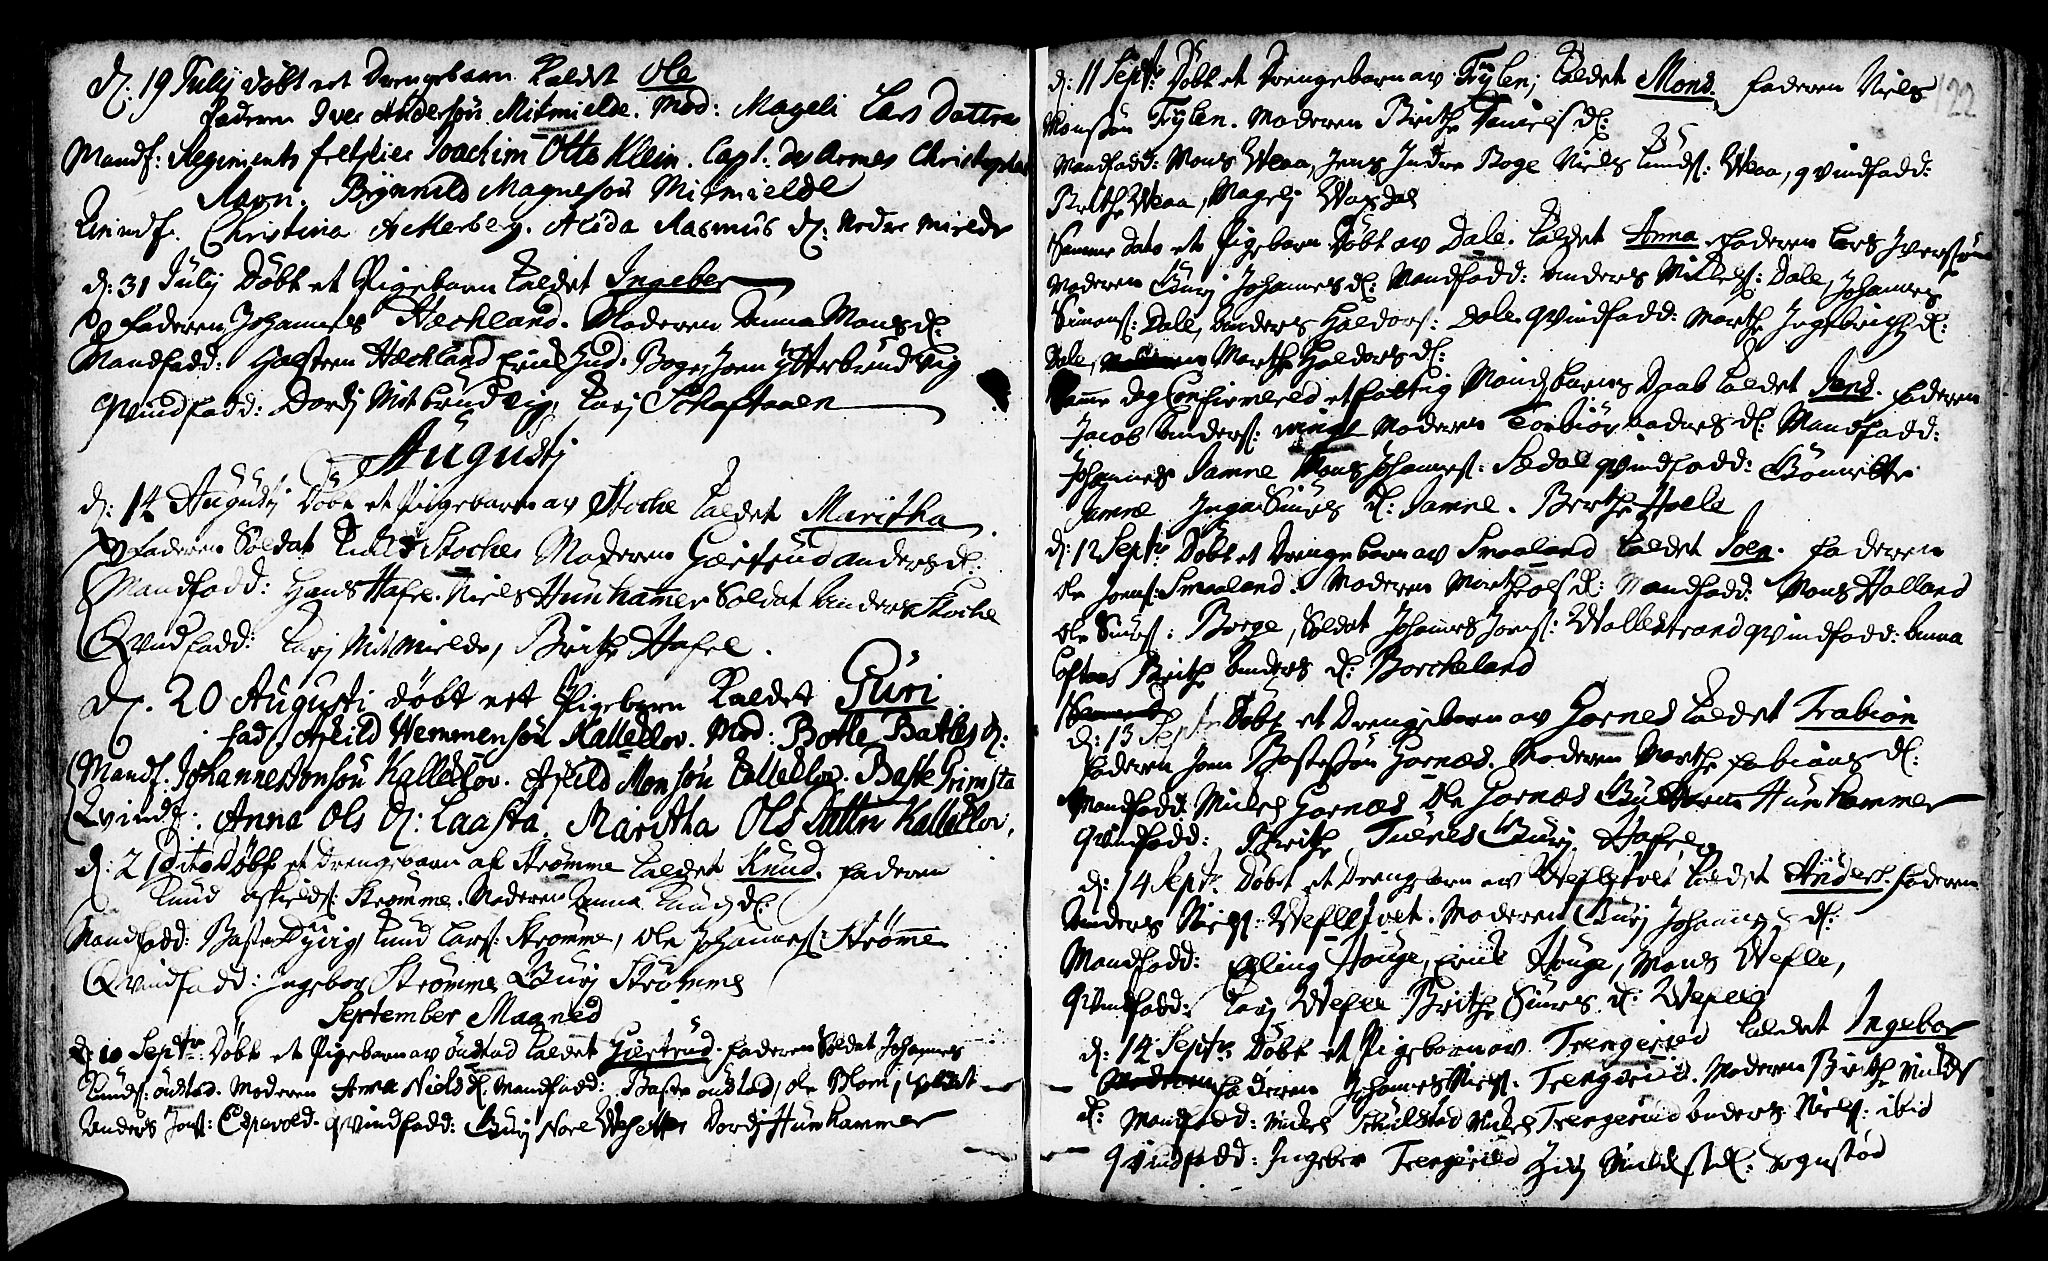 d: 19 Julij döbt ett Drengebarn kaldet Ole
faderen Iver Anderson Mitmielde. Mod: Mageli Lars Dattra
Mandf: Regiments feltskier Joachim Otto Klein. Capt: des Armes Christopher
Ravn. Brynnild Magneson Mitmielde
Qvindf. Christina Ackerberg. Alida Rasmus D: Nedre mielde
d: 31 Julij Döbt et Pigebarn kaldet Ingeber
faderen Johannes Hechland. Moderen Anna Mons D:
Mandfadd: Halsteen Hechland Erick Joen Ytterbrudvig
Qvindfadd: Dordj Mitbrudvig, Karj Schaftaaen
Augustj
d: 14 Augustj Döbt et Pigebarn av Stoche kaldet Maritha
faderen Soldat Stoche Moderen Giertrud Anders D:
Mandfadd: Hans Hafre. Niels Hunhamer Soldat Anders Stoche
Qvindfadd: Karj Mitmielde, Brithe Hafre.
d. 20 Augusti döbt ett Pigebarn kaldet Güri
fad. Askild Hemmenson Kalleklov. Mod: Botle Baltes D:
Mandf. Johannes Jonson Kalleklov. Askild Monson Kalleklov. Baste Grimsta
Qvindf: Anna Ols D: Laasta. Maritha Ols Dattri Kalleklov.
d: 21 dito Döbt et drengebarn af Strömme kaldet Knud. faderen
Knud Askields: Strömme. Moderen Anna Knuds D:
Mandfadd: Baste Dyvig, Knud Lars: Strömme, Ole Johannes: Strömme
Qvindfadd: Ingebor Strömme Gurj Strömme
September Maaned
d: 10 Septr: Döbt et Pigebarn av öudstad kaldet Giertrud. faderen Soldat Johannes
Knuds: öudstad. Moderen Anna Niels D: Mandfadd: Baste öudstad, Ole Blom, Soldat
Anders Jons: Espevold. Qvindfadd: Gurj Dordj Hunhammer
122
d: 11 Septr: Döbt et Drengebarn av Trylen, kaldet Mons. faderen Niels
Monsson Trylen. Moderen Brithe Daniels D:
Mandfadd: Mons Weaa, Jens Indre Boge Niels Knuds: Weaa, qvindfadd:
Brithe Weaa, Magelj
Samme dato et Pigebarn Döbt av Dale. kaldet Anna faderen Lars Iversson
Moderen Gurj Johannes D: Mandfadd: Anders Mickels: Dale, Johannes
Simons: Dale, Anders Haldors: Dale. Qvindfadd: Marthe Ingebrigts D:
Dale, Marthe Haldors D:
Samme dag Confirmered et fattig Mands barns Daab kaldet Jens. faderen
Jacob Anders: Moderen Torbiör D: Mandfadd:
Johannes Jamne Mons Johannes: Sædal qvindfadd:
Jamne Inga Siurs D: Jamne. Berthe Holle
d: 12 Septr: Döbt et Drengebarn av Smaaland kaldet Joen. faderen
Ole Joens: Smaaland. Moderen Marthe Ols D: Mandfadd: Mons Holland
Ole Siurs: Borge, Soldat Johannes Jons: Wallestrand qvindfadd: Anna
Brithe Anders D: Borckeland
d: 13 Septr: Döbt et Drengebarn av Gornes kaldet Frabian
faderen Joen Bastesson Gornæs. Moderen Marthe Fabians D:
Mandfadd: Mickel Gornæs Ole Gornæs Hunhammer
qvindfadd: Brithe Gurj Hafre
d: 14 Septr: Döbt et Drengebarn av kaldet Anders. faderen
Anders Niels: Moderen Gurj Johannes D:
Mandfadd: Erling Houge, Erick Houge, Mons Wefle,
Qvindfadd: Karj Wefle Brithe Siurs D: Wefle
d: 14 Septr: Döbt et Pigebarn av Trengereid kaldet Ingebor
faderen Johannes Niels: Trengereid. Moderen Brithe Nields
D: Mandfadd: Mickel Mickel Trengereid Anders Niels: ibid
Qvindfadd: Ingeber Trengereid D: Sognstød